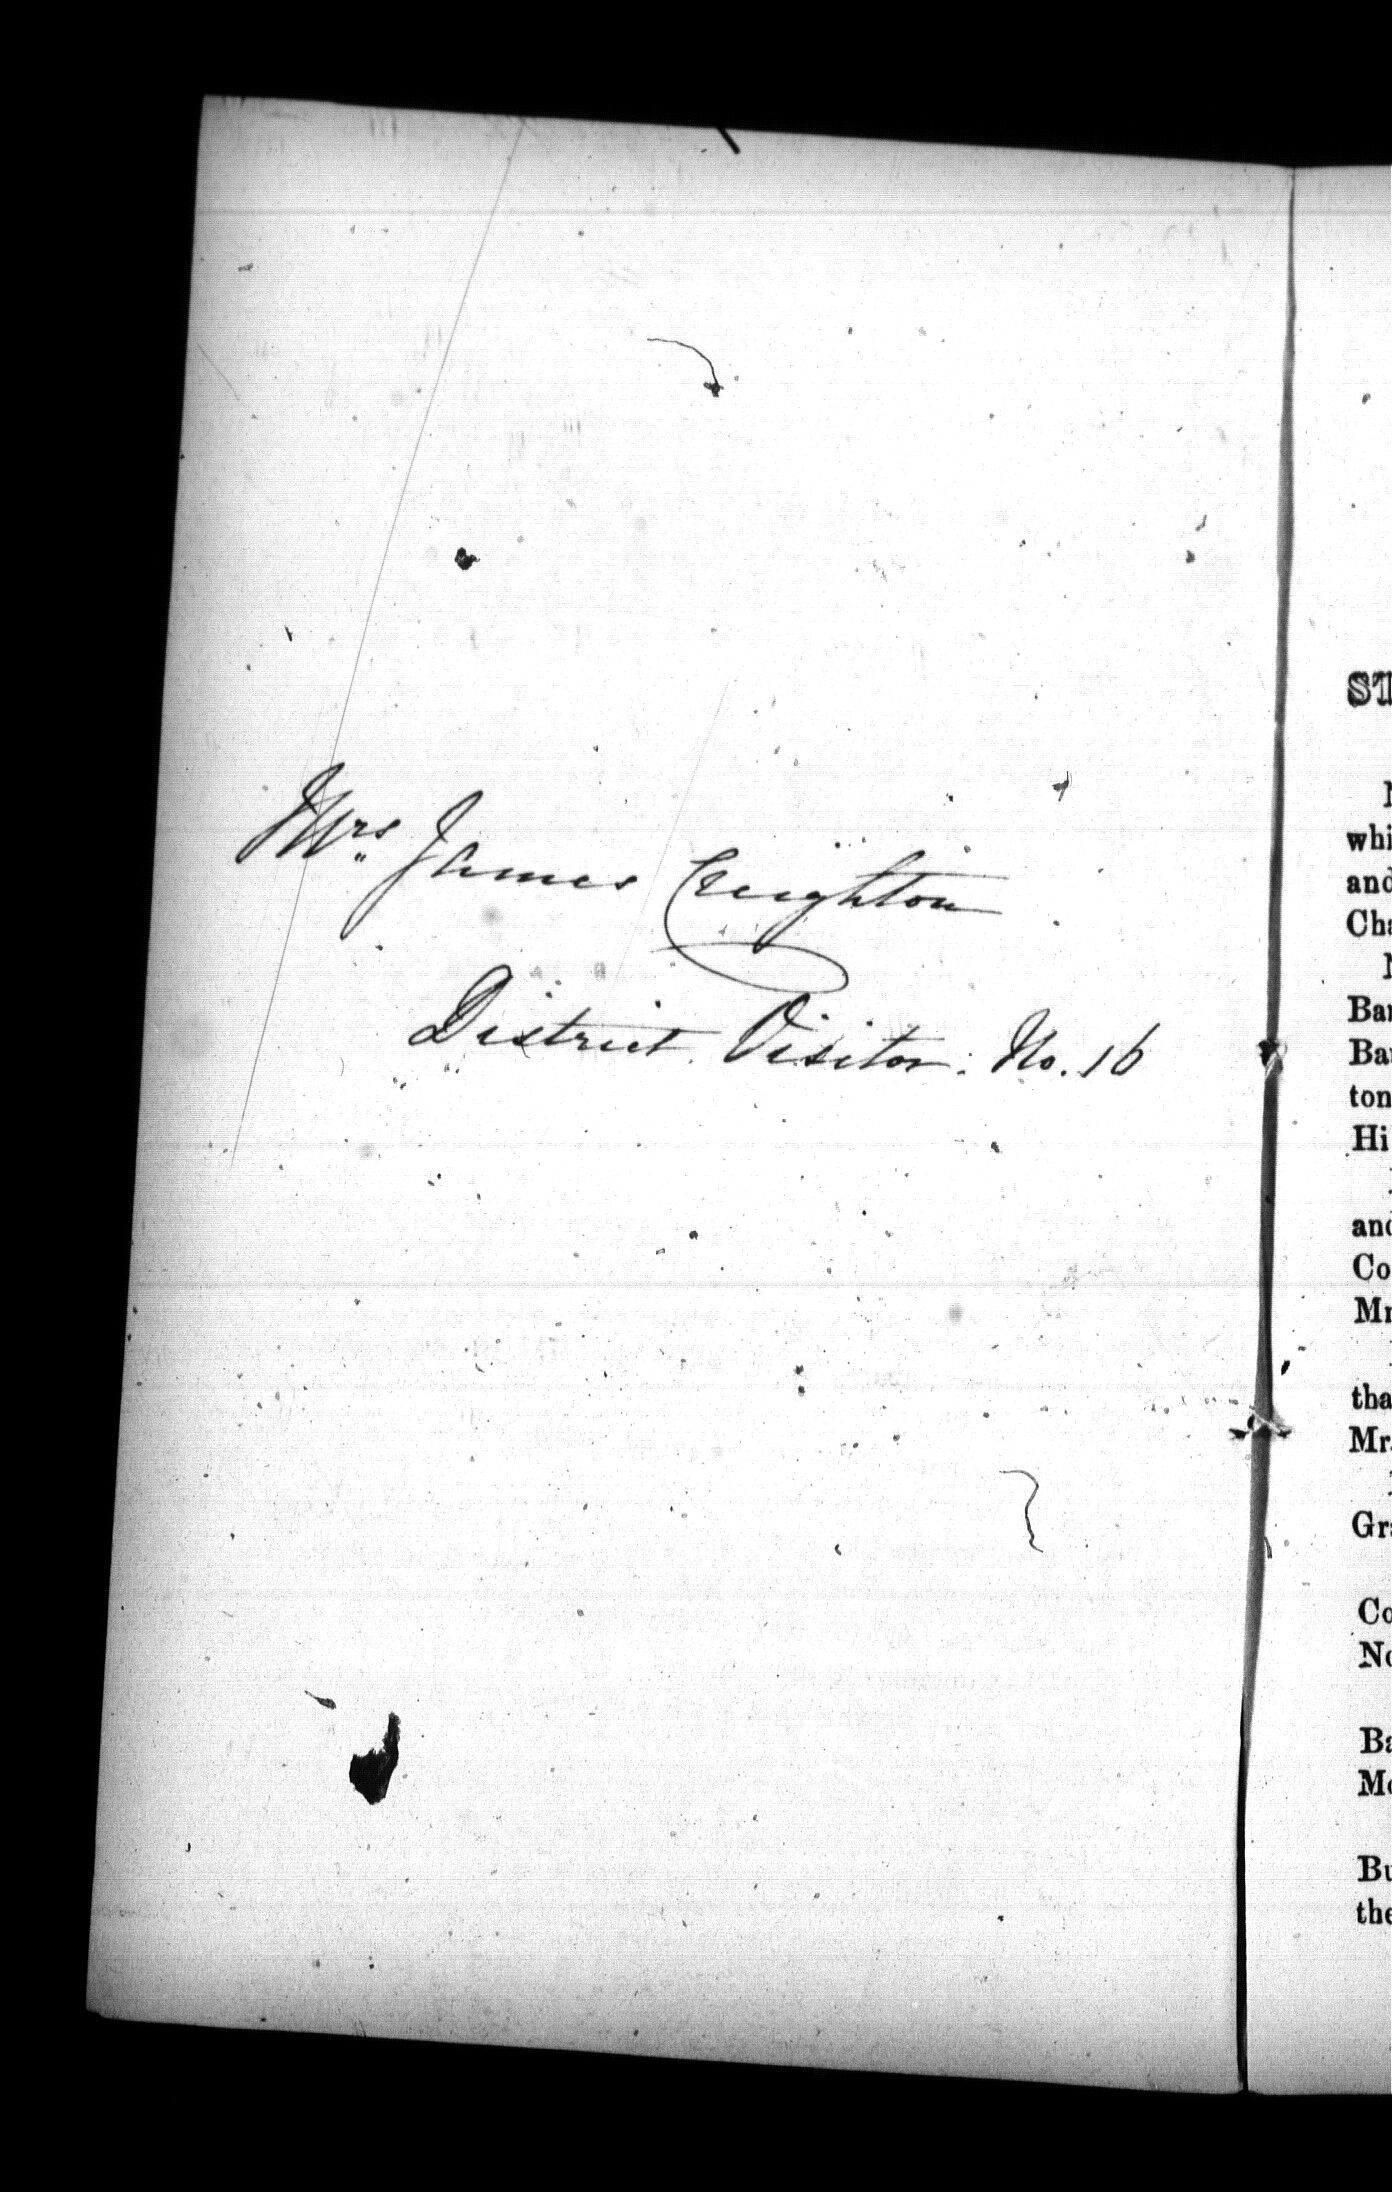 Mrs. James Creighton
District Visitor. No. 16
ST
whi
and
Cha
Bar
Bar
ton
Hi
and
Co
Mr
tha
Mr.
Gra
Co
No
Ba
Mc
Bu
the